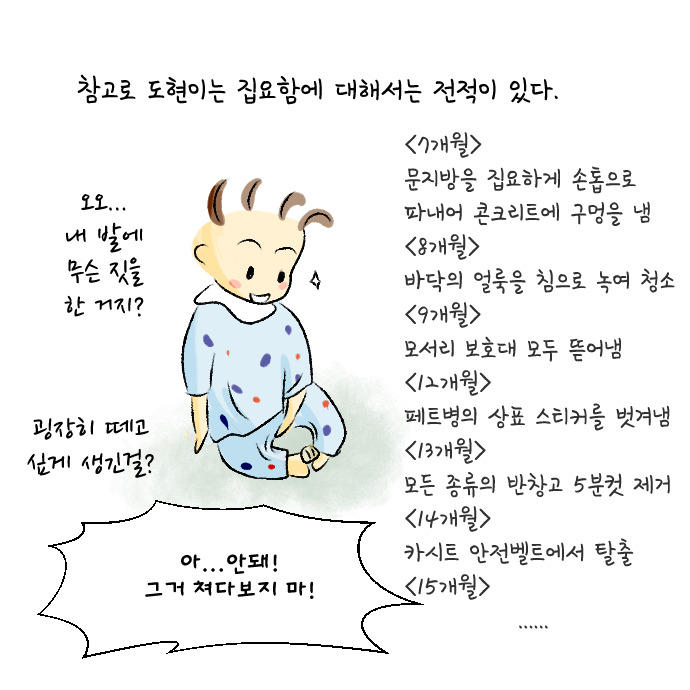 참고로 도현이는 집요함에 대해서는 전적이 있다.
오오...
내 발에
무슨 짓을
한 거지?
굉장히 떼고
싶게 생긴걸?
<7개월>
문지방을 집요하게 손톱으로
파내어 콘크리트에 구멍을 냄
<8개월>
바닥의 얼룩을 침으로 녹여 청소
<9개월>
모서리 보호대 모두 뜯어냄
<12개월>
페트병의 상표 스티커를 벗겨냄
<13개월>
모든 종류의 반창고 5분컷 제거
<14개월>
카시트 안전벨트에서 탈출
<15개월>
......
아...안돼!
그거 쳐다보지 마!